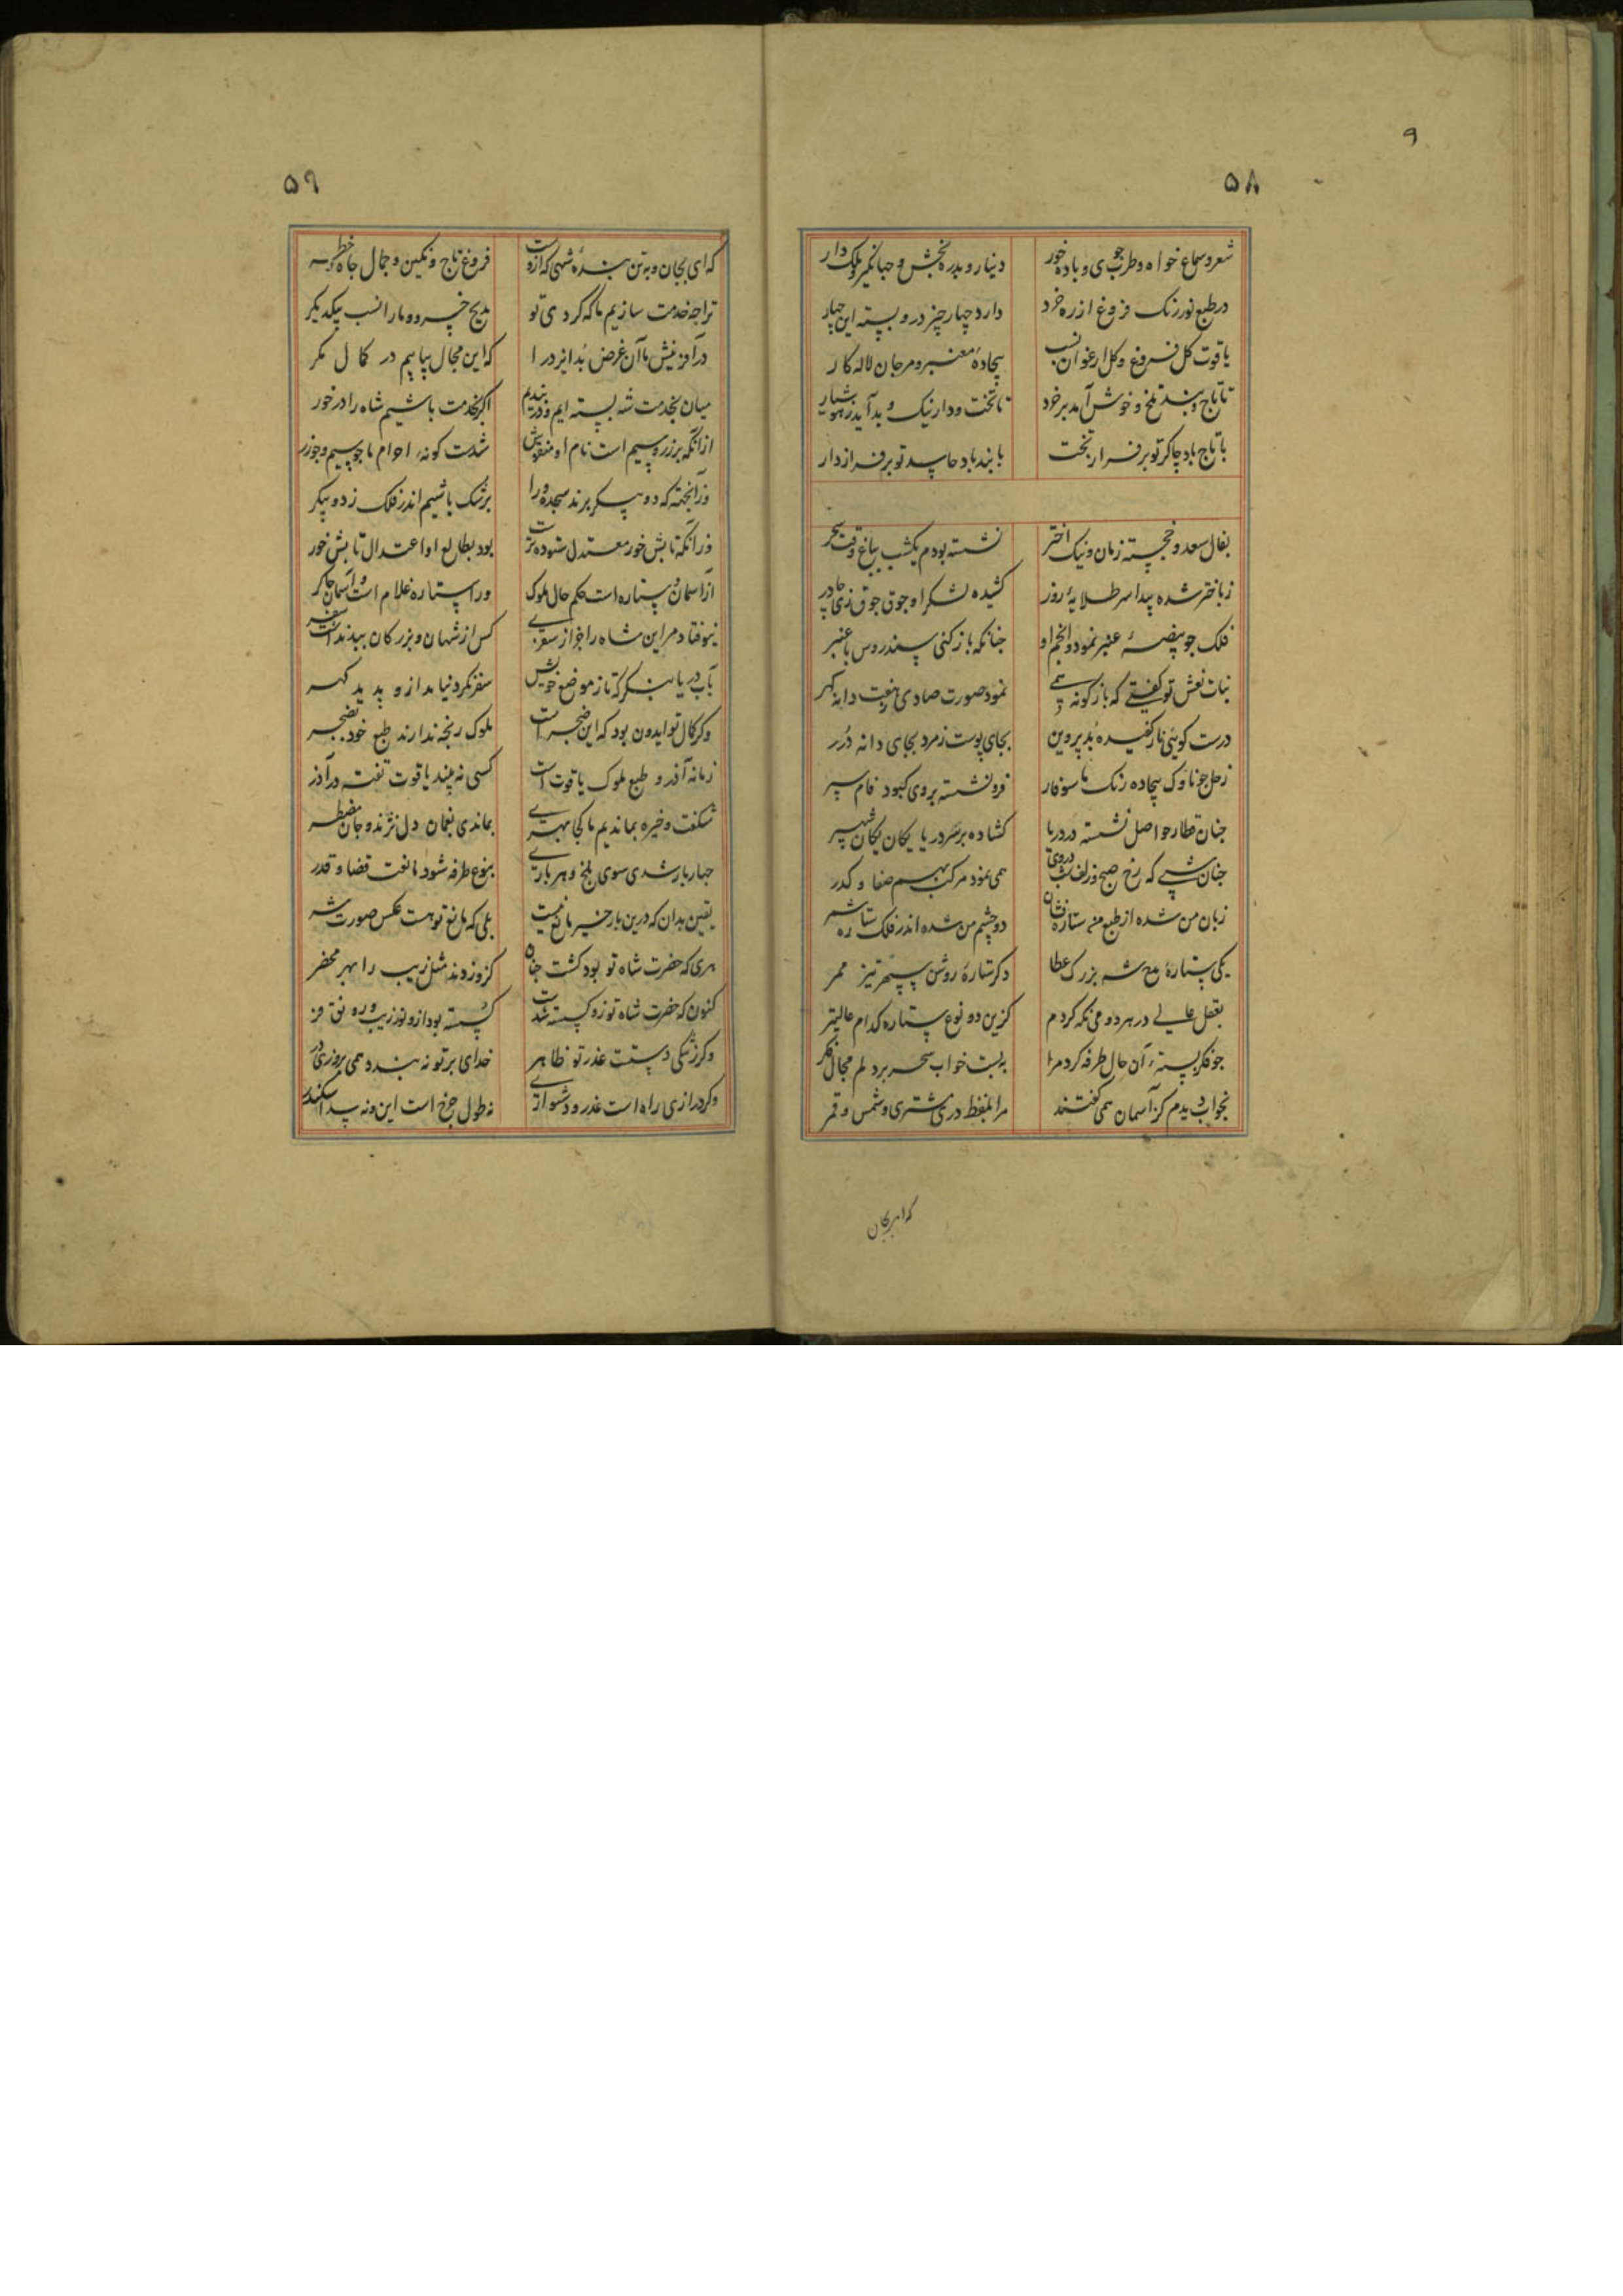 ۹
۵۸
شعر و سماع خواه و طرب جوی و باده خور دینار و بدره بخش و جهانگیر و ملک دار
در طبع نور زنک فروغ از ره خرد دارد چهار چیز درو بسته این چهار
یاقوت کل فروغ و کل ارغوان نسب بیجاده معنبر و مرجان لاله کار
تا تاج و بند تلخ و خوش آمد بر خرد تا تخت و دار نیک و بد آید
با تاج باد چاکر تو بر فراز تخت با بند باد حاسد تو بر فراز دار
بفال سعد و خجسته زمان و نیک اختر نشسته بودم یکشب بباغ وقت سحر
ز باختر شده پیدا سر طلایهٔ روز کشیده لشکر او جوق جوق زی خاور
فلک جو بیضهٔ عنبر نمود و انجم او جنانکه باز کنی سندروس با عنبر
بنات نعش تو کفتی که بازکونه نمود صورت صادی ز هفت دانه کهر
درست کوئی نار کفیده بُد پروین بجای پوست زمرد بجای دانه دُرر
زحل جو ناوک بیجاده رنک تا سوفار فرو نشسته بروی کبود فام سپر
جنان قطار حواصل نشسته در دریا کشاده بر سر دریا یکان یکان شهپر
جنان شبی که رخ صبح و زلف شب در وی همی نمود مرکب بهم صفا و کدر
زبان من شده از طبع من ستاره فشان دو چشم من شده اندر فلک ستاره شمر
یکی ستارهٔ مدح شه بزرک عطا دکر ستارهٔ روشن سپهر تیز ممر
بعقل عالی در هر دو می نکه کردم کزین دو نوع ستاره کدام عالیتر
جو فکر بسته آن حال طرفه کرد مرا ببست خواب سحر بر دلم مجال فکر
بخواب دیدم کز آسمان همی کفتند مرا بلفظ دری مشتری و شمس و قمر
که ای بجان
۵۹
که ای بجان و به تن بندهٔ شهی که ازوست فروغ تاج و نکین و جمال جاه و خطر
ترا چه خدمت سازیم ما که کردی تو مدیح خسرو و ما را نسب بیکدیکر
در آفرینش ما آن غرض بُد ایزد را که این مجال بیابیم در کمال مکر
میان بخدمت شه بسته ایم و در بندیم اکر بخدمت باشیم شاه را در خور
از آنکه بر زر و سیم است نام او منقوش شدست کونهٔ اجرام ما جو سیم و جو زر
وز آنجهة که دو پیکر برند سجده ورا برشک باشیم اندر فلک ز دو پیکر
وز آنکه تابش خور معتدل ستوده ترست بود بطالع او اعتدال تابش خور
از آسمان و ستاره است حکم حال ملوک ورا ستاره غلام است و آسمان چاکر
نیوفتاد مر این شاه را جز از سفری کس از شهان و بزرکان ندیده است سفر
بآب دریا بنکر که تا ز موضع خویش سفر نکرد نیامد ازو پدید کهر
وکر کمال تو ایدون بود که این ضجر است ملوک رنجه ندارند طبع خود بضجر
زمانه آذر و طبع ملوک یاقوت است کسی نه بیند یاقوت تفت در آذر
شکفت و خیره بماندیم ما کجا بهری بماندی بغمان دل نژند و جان مضطر
جهار بار شدی سوی بلخ و هر باری بنوع طرفه شود مانعت قضا و قدر
یقین بدان که درین بار خیر مانع نیست بلی که مانع تو هست عکس صورت شر
هری که حضرت شاه تو بود کشت جنان کزو زدند مثل زیب را بهر محضر
کنون که حضرت شاه تو زو کسسته شدست کسسته بود ازو نور زیب و رونق و فر
وکر ز تنکی دستت عذر تو ظاهر خدای بر تو نه بندد همی ز روزی در
وکر درازی راه است عذر و دشواری نه طول چرخ است این و نه سد اسکندر